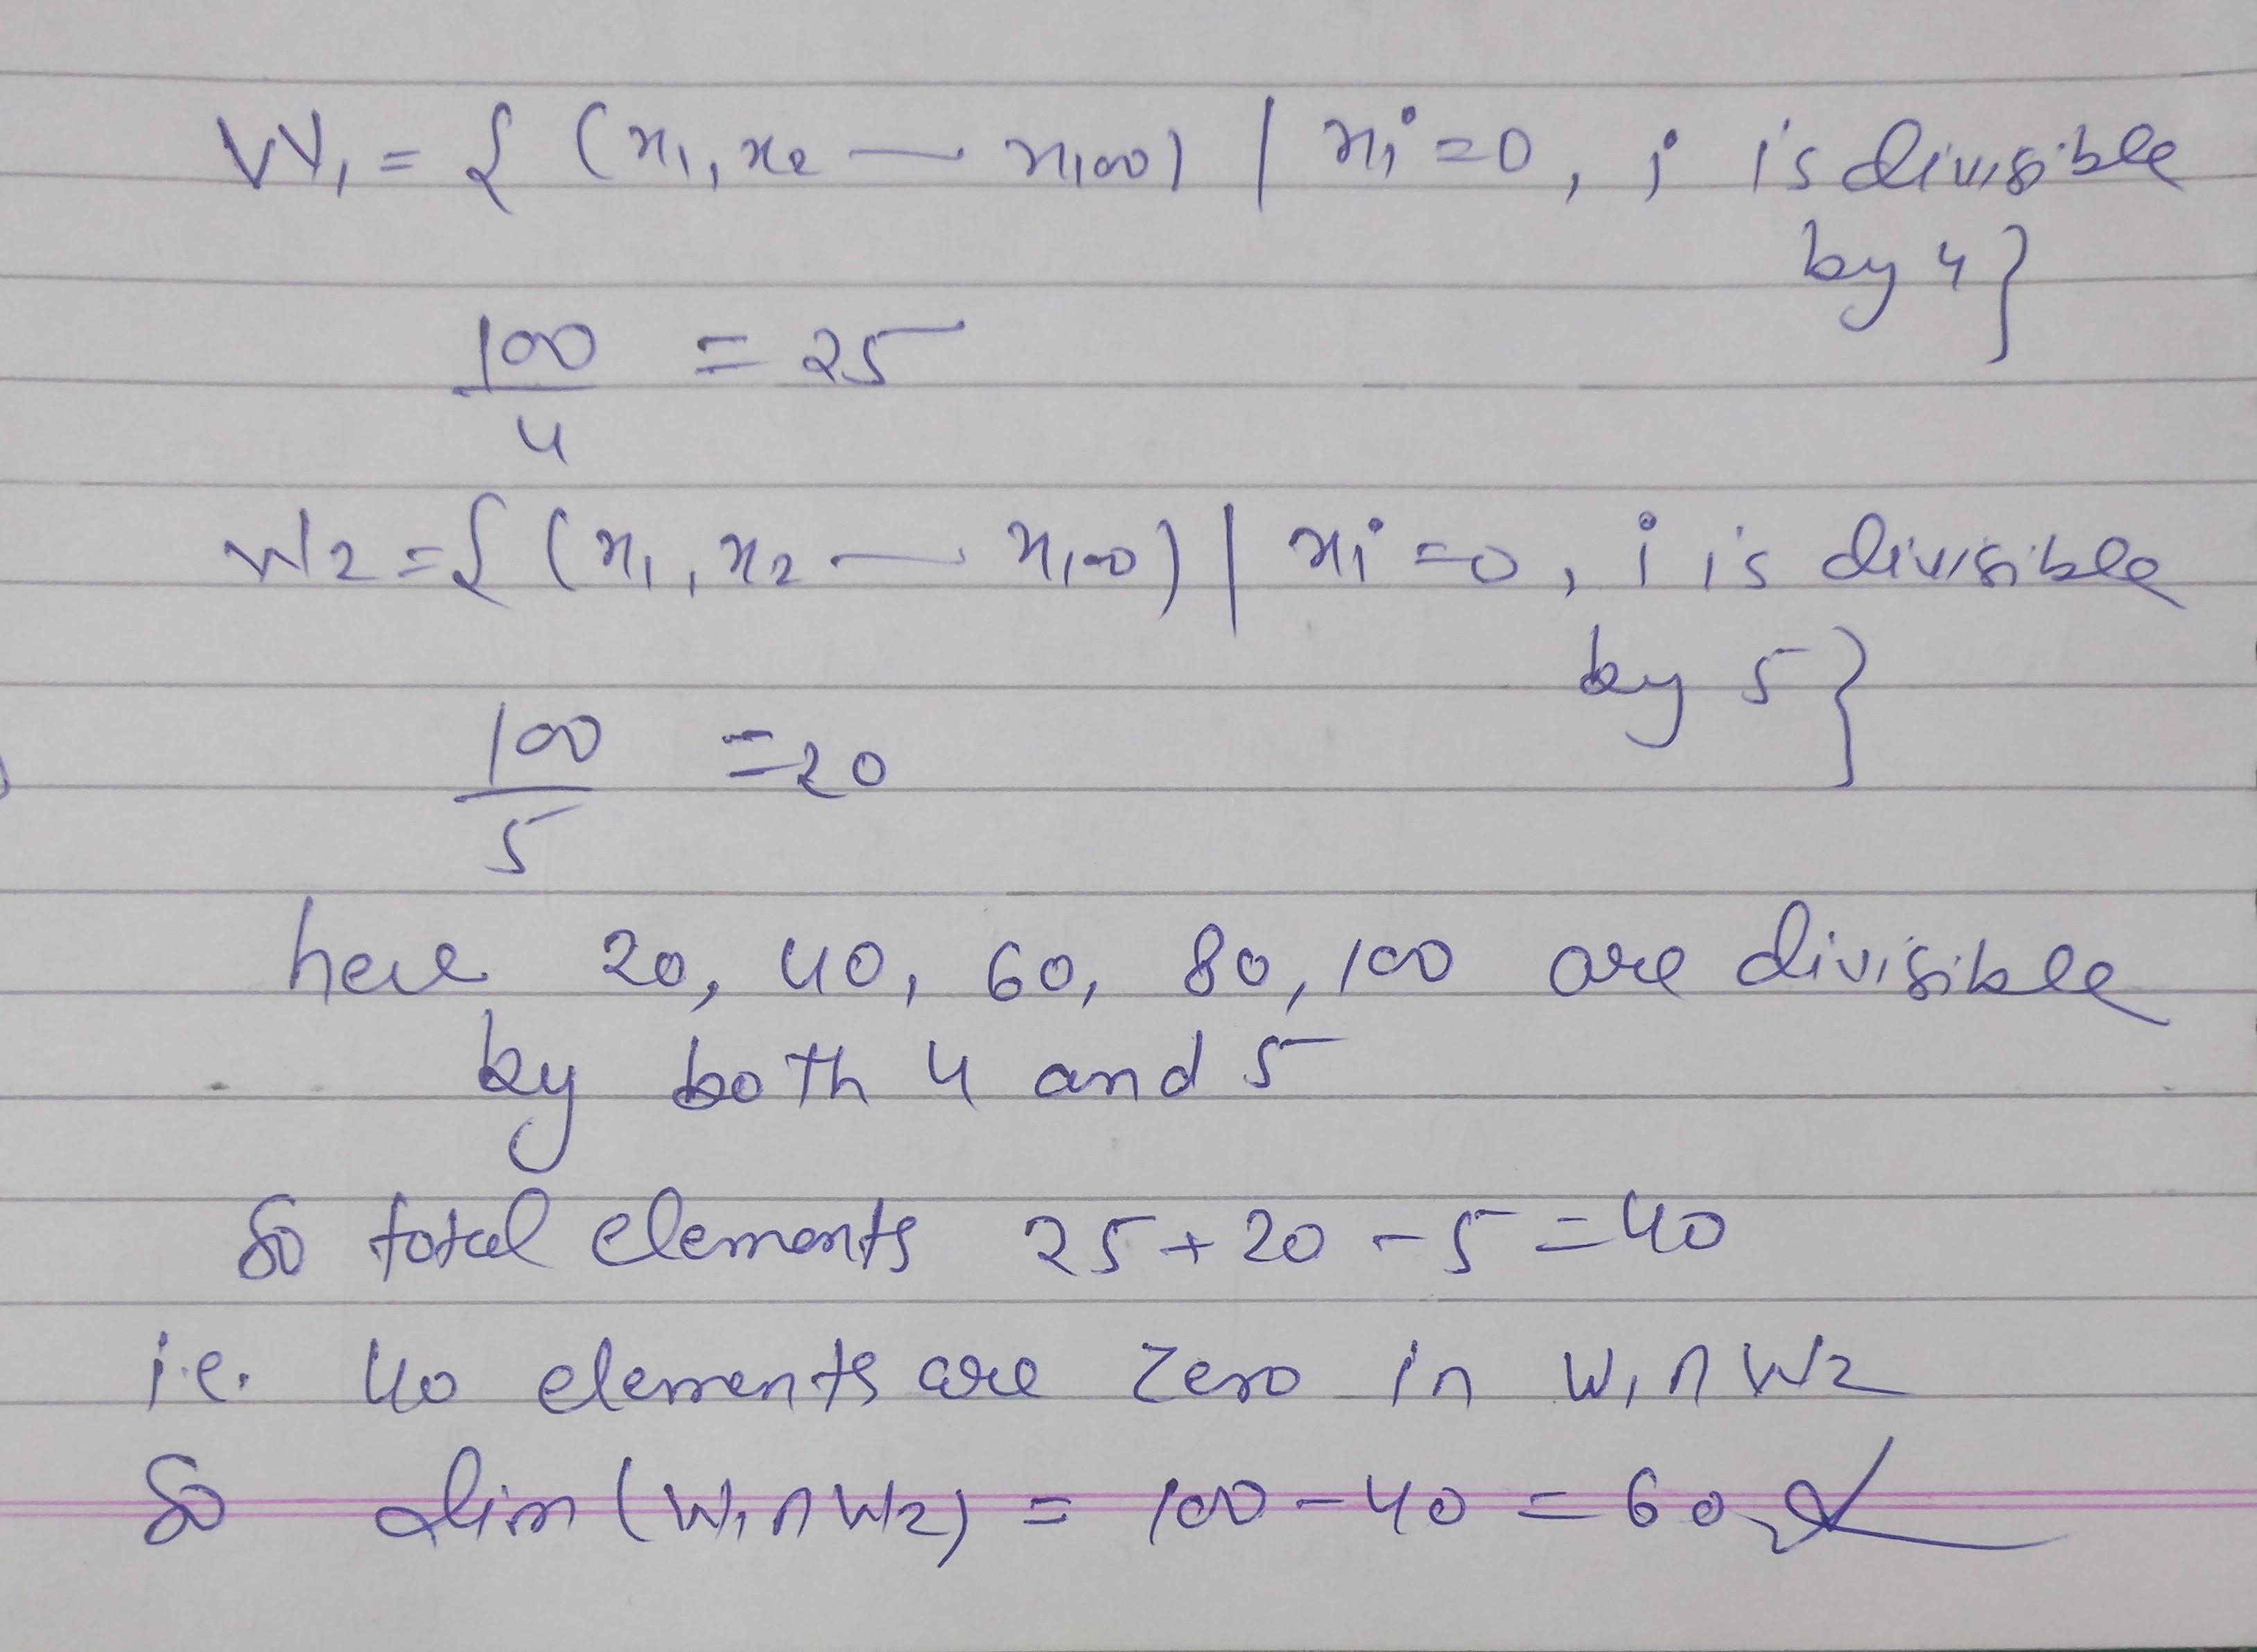 W₁ = { (x₁, x₂ — x₁₀₀) | xᵢ = 0, i is divisible
by 4}
100/4 = 25
W₂ = { (x₁, x₂ — x₁₀₀) | xᵢ = 0, i is divisible
by 5}
100/5 = 20
here 20, 40, 60, 80, 100 are divisible
by both 4 and 5
So total elements 25 + 20 - 5 = 40
i.e. 40 elements are zero in W₁ ∩ W₂
So dim (W₁ ∩ W₂) = 100 - 40 = 60